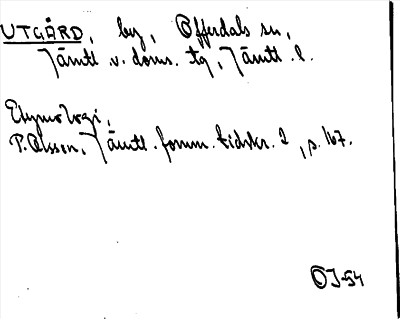 UTGÅRD, by, Offerdals sn,
Jämtl. v. doms. tg, Jämtl. l.
Etymologi,
P. Olsson, Jämtl. fornm. tidskr. 2, s. 167.
OJ-54